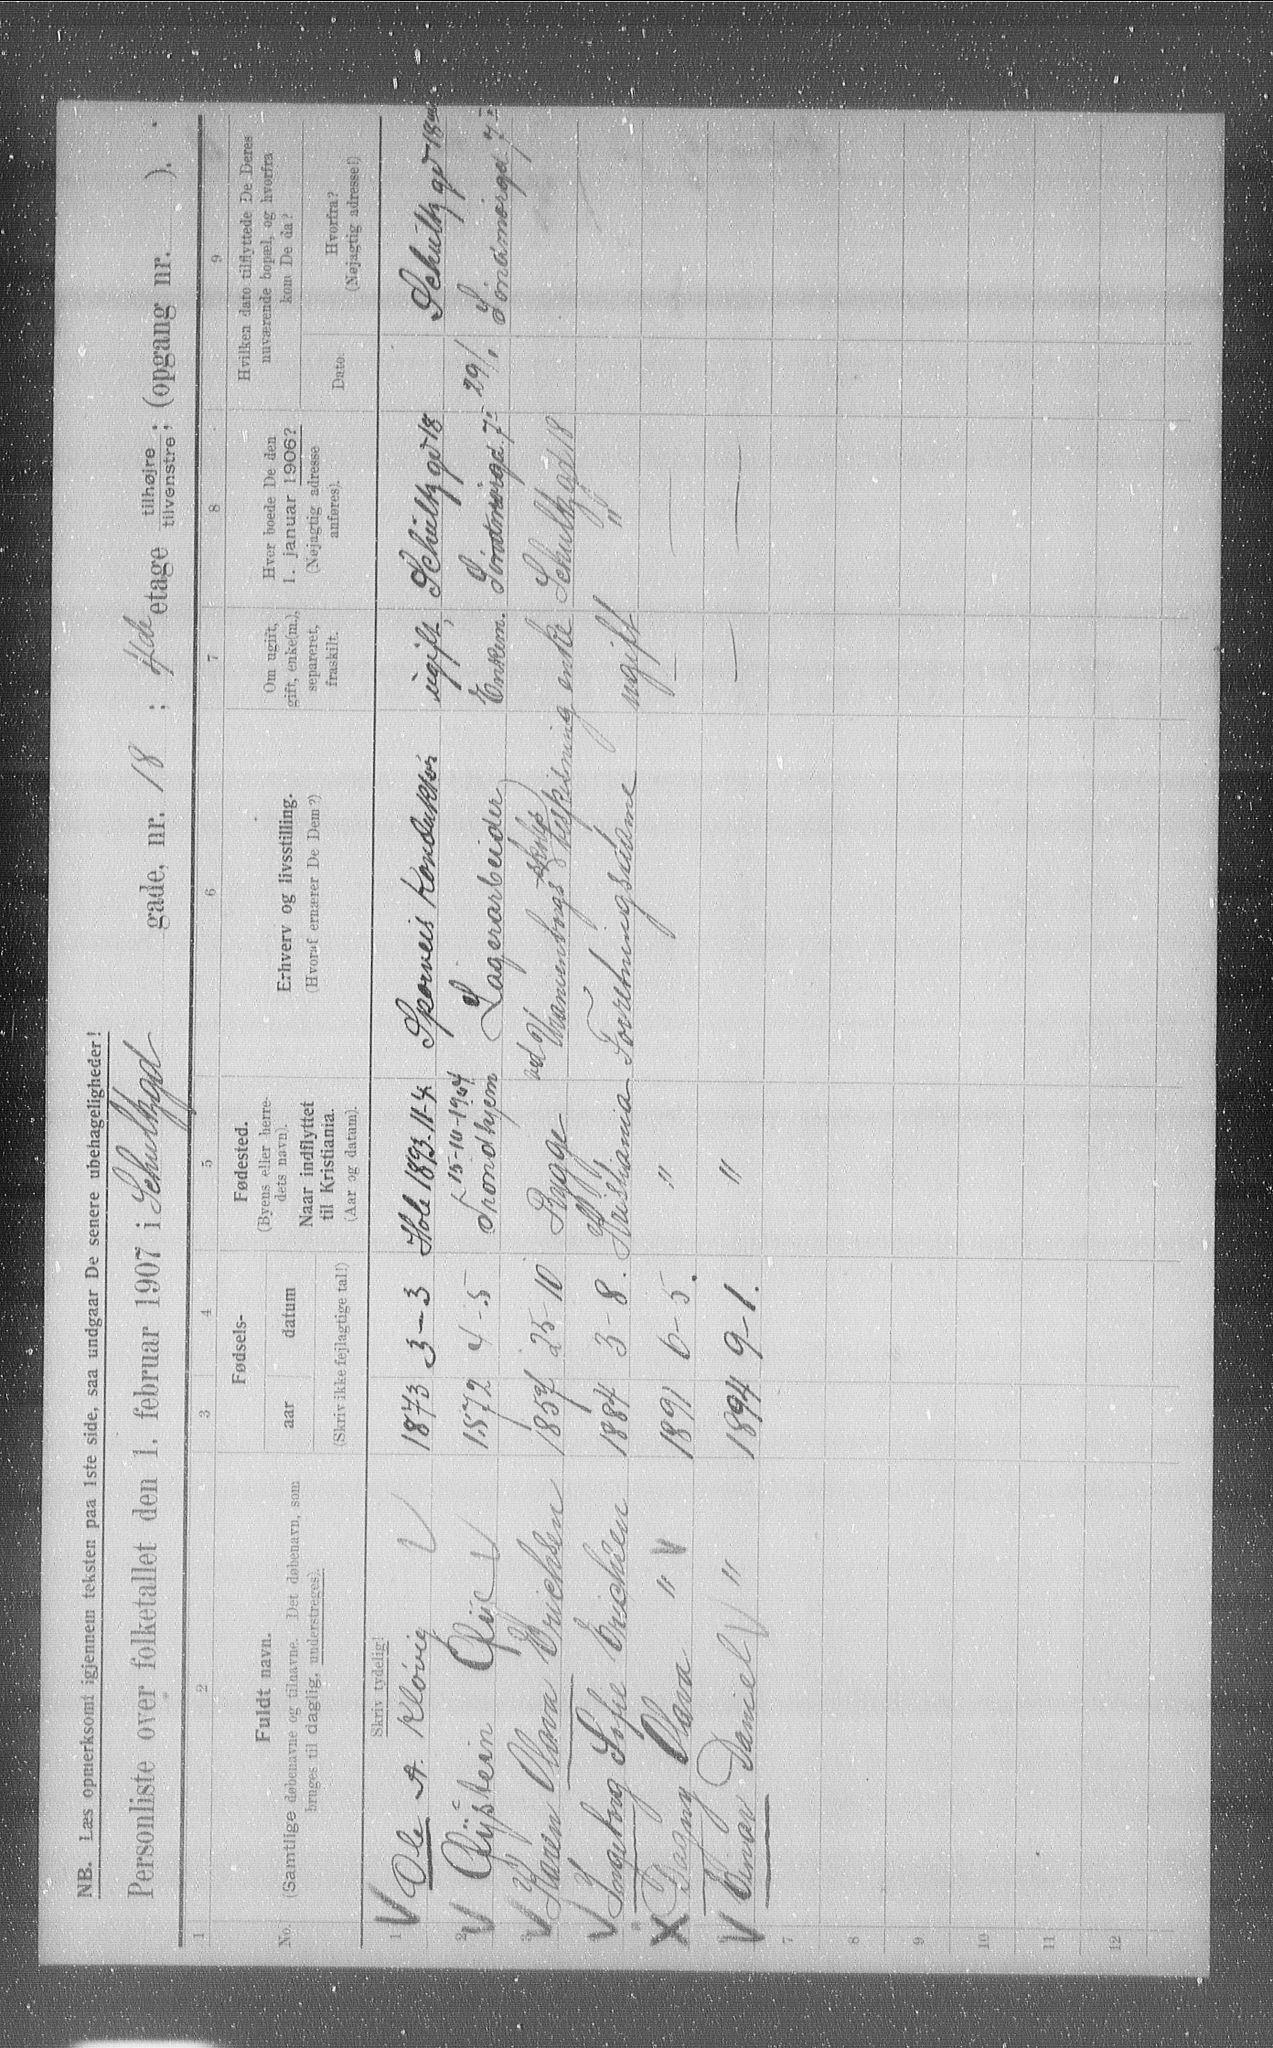 NB. Læs opmerksomt igjennem teksten paa 1ste side, saa undgaar De senere ubehageligheder!
Personliste over folketallet den 1. februar 1907 i Schultzgd gade, nr. 18 ; 4de etage tilhøjre tilvenstre; (opgang nr. ).
1 2 3 4 5 6 7 8 9
No. Fuldt navn. (Samtlige døbenavne og tilnavne. Det døbenavn, som bruges til daglig, understreges).
Fødsels- aar datum (Skriv ikke fejlagtige tal!)
Fødested. (Byens eller herredets navn). Naar indflyttet til Kristiania. (Aar og datum).
Erhverv og livsstilling. (Hvoraf ernærer De Dem?)
Om ugift, gift, enke(m.), separeret, fraskilt.
Hvor boede De den 1. januar 1906? (Nøjagtig adresse anføres).
Hvilken dato tilflyttede De Deres nuværende bopæl, og hvorfra kom De da?
Dato. Hvorfra? (Nøjagtig adresse!)
Skriv tydelig!
1 Ole A. Kløvig 1873 3-3 Hole 1893-11-4 Sporveis Konduktør ugift, Schultz gd 18
2 Øystein 1872 4-5 15-10-1904 Trondhjem Lagerarbeider Enkem. Søndmørgd. 7 29/1 Søndmørgd 7
3 Karen Olava Erichsen 1857 25-10 Rygge ved enke Schultzgd 18
4 Ingeborg Sofie Erichsen 1884 3-8. Kristiania Forretningsdame ugift "
5 Dagny Olava " 1891 6-5. " — —
6 Einar Daniel " 1894 9-1. " — —
7
8
9
10
11
12